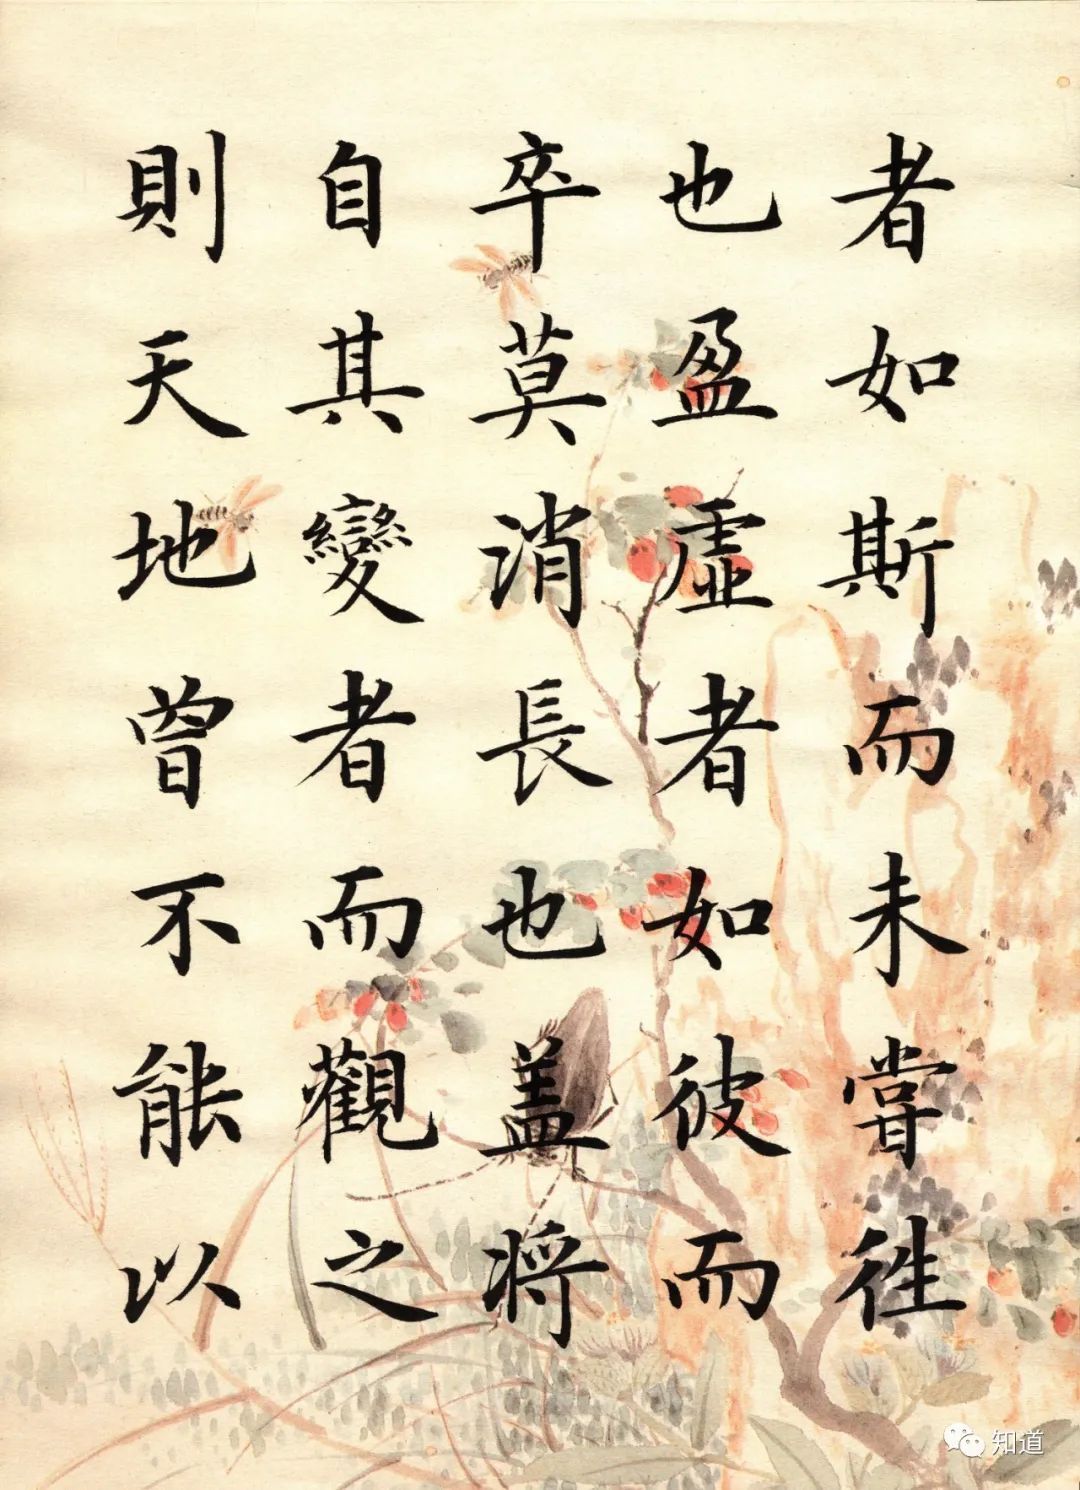 者如斯而未嘗往
也盈虛者如彼而
卒莫消長也盖將
自其變者而觀之
則天地曾不能以
知道